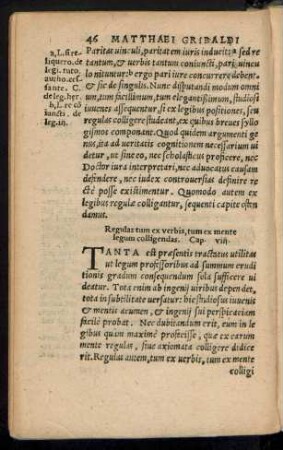 46 MATTHAEI GRIBALDI
a, L. si re-
liquero. de
legi. tuto.
auiho. cef-
sante. C.
de leg. her.
b, L. re cō
iuncti. de
leg. iij.
Paritas uinculi, paritatem iuris inducit: a sed re
tantum, & uerbis tantum coniuncti, pari uincu
lo nituntur: b ergo pari iure concurrere debent.
& sic de singulis. Nunc disputandi modum omni
um, tum facillimum, tum elegantissimum, studiosi
iuuenes assequentur, si ex legibus positiones, seu
regulas colligere studeant, ex quibus breues syllo
gismos componant. Quod quidem argumenti ge
nus, ita ad ueritatis cognitionem necessarium ui
detur, ut sine eo, nec scholasticus proficere, nec
Doctor iura interpretari, nec aduocatus causam
defendere, nec iudex controuersias definire re
ctè posse existimentur. Quomodo autem ex
legibus regulæ colligantur, sequenti capite osten
damus.
Regulas tum ex verbis, tum ex mente
legum colligendas. Cap viij.
TANTA est præsentis tractatus utilitas
ut legum professoribus ad summum erudi
tionis gradum consequendum sola sufficere ui
deatur. Tota enim ab ingenij uiribus dependet,
tota in subtilitate uersatur: hic studiosus iuuenis
& mentis acumen, & ingenij sui perspicaciam
facilè probat. Nec dubitandum erit, eum in le
gibus quàm maximè profecisse, quæ ex earum
mente regulas, siue axiomata colligere didice
rit. Regulas autem, tum ex uerbis, tum ex mente
colligi